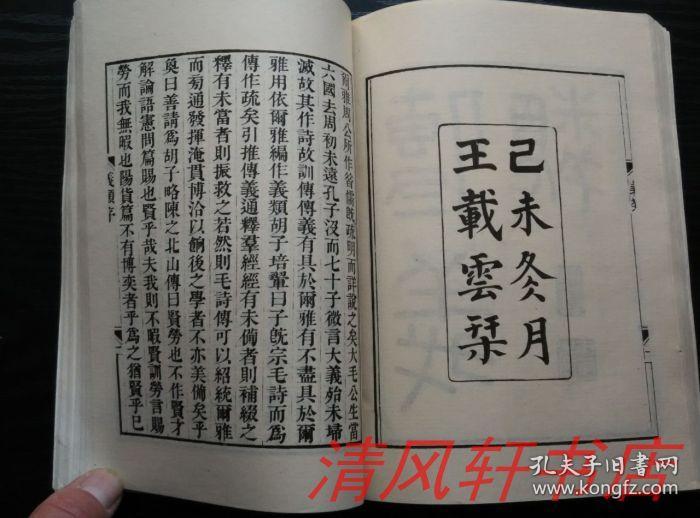 己未冬月
王載雲栞
爾雅周公所作昝儒旣疏明而詳說之矣大毛公生當
六國去周初未遠孔子沒而七十子微言大義殆未埽
滅故其作詩故訓傳傳義有具於爾雅有不盡具於爾
雅用依爾雅編作義類胡子培翬曰子旣宗毛詩而爲
傳作疏矣引推傳義通釋羣經經有未備者則補綴之
釋有未當者則振救之若然則毛詩傳可以紹統爾雅
而菊通發揮淹貫博洽以餉後之學者不亦美備矣乎
奐曰善請爲胡子略陳之北山傳曰賢勞也不作賢才
解論語憲問篇賜也賢乎哉夫我則不暇賢訓勞言賜
勞而我無暇也陽貨篇不有博奕者乎爲之猶賢乎已
義類序
清风轩书店
孔夫子旧书网
www.kongfz.com